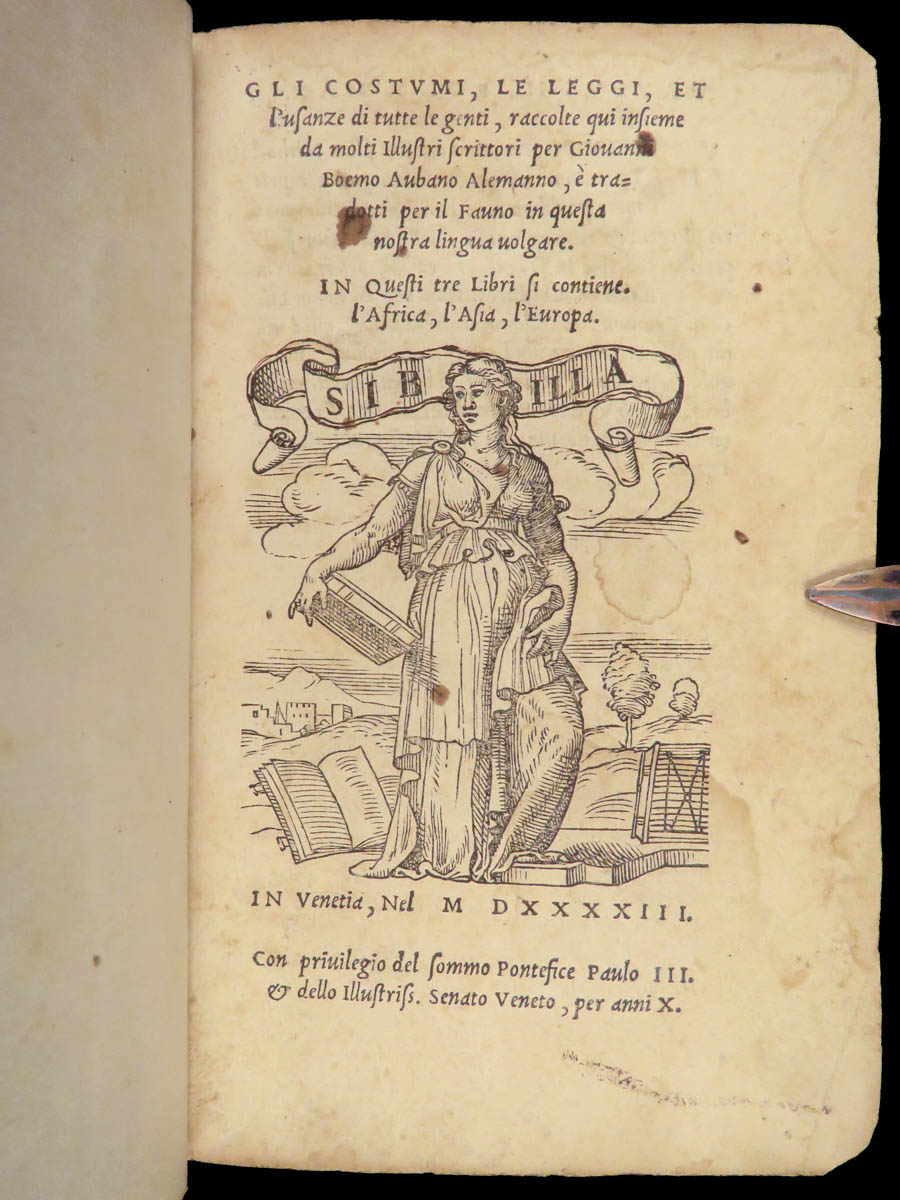 GLI COSTVMI, LE LEGGI, ET
l'uſanze di tutte le genti, raccolte qui inſieme
da molti Illuſtri ſcrittori per Giouanni
Boemo Aubano Alemanno, è tra=
dotti per il Fauno in queſta
noſtra lingua uolgare.
IN Queſti tre Libri ſi contiene.
l'Africa, l'Aſia, l'Europa.
SIB ILLA
IN Venetia, Nel M D XXXXIII.
Con priuilegio del ſommo Pontefice Paulo III.
& dello Illuſtriſſ. Senato Veneto, per anni X.